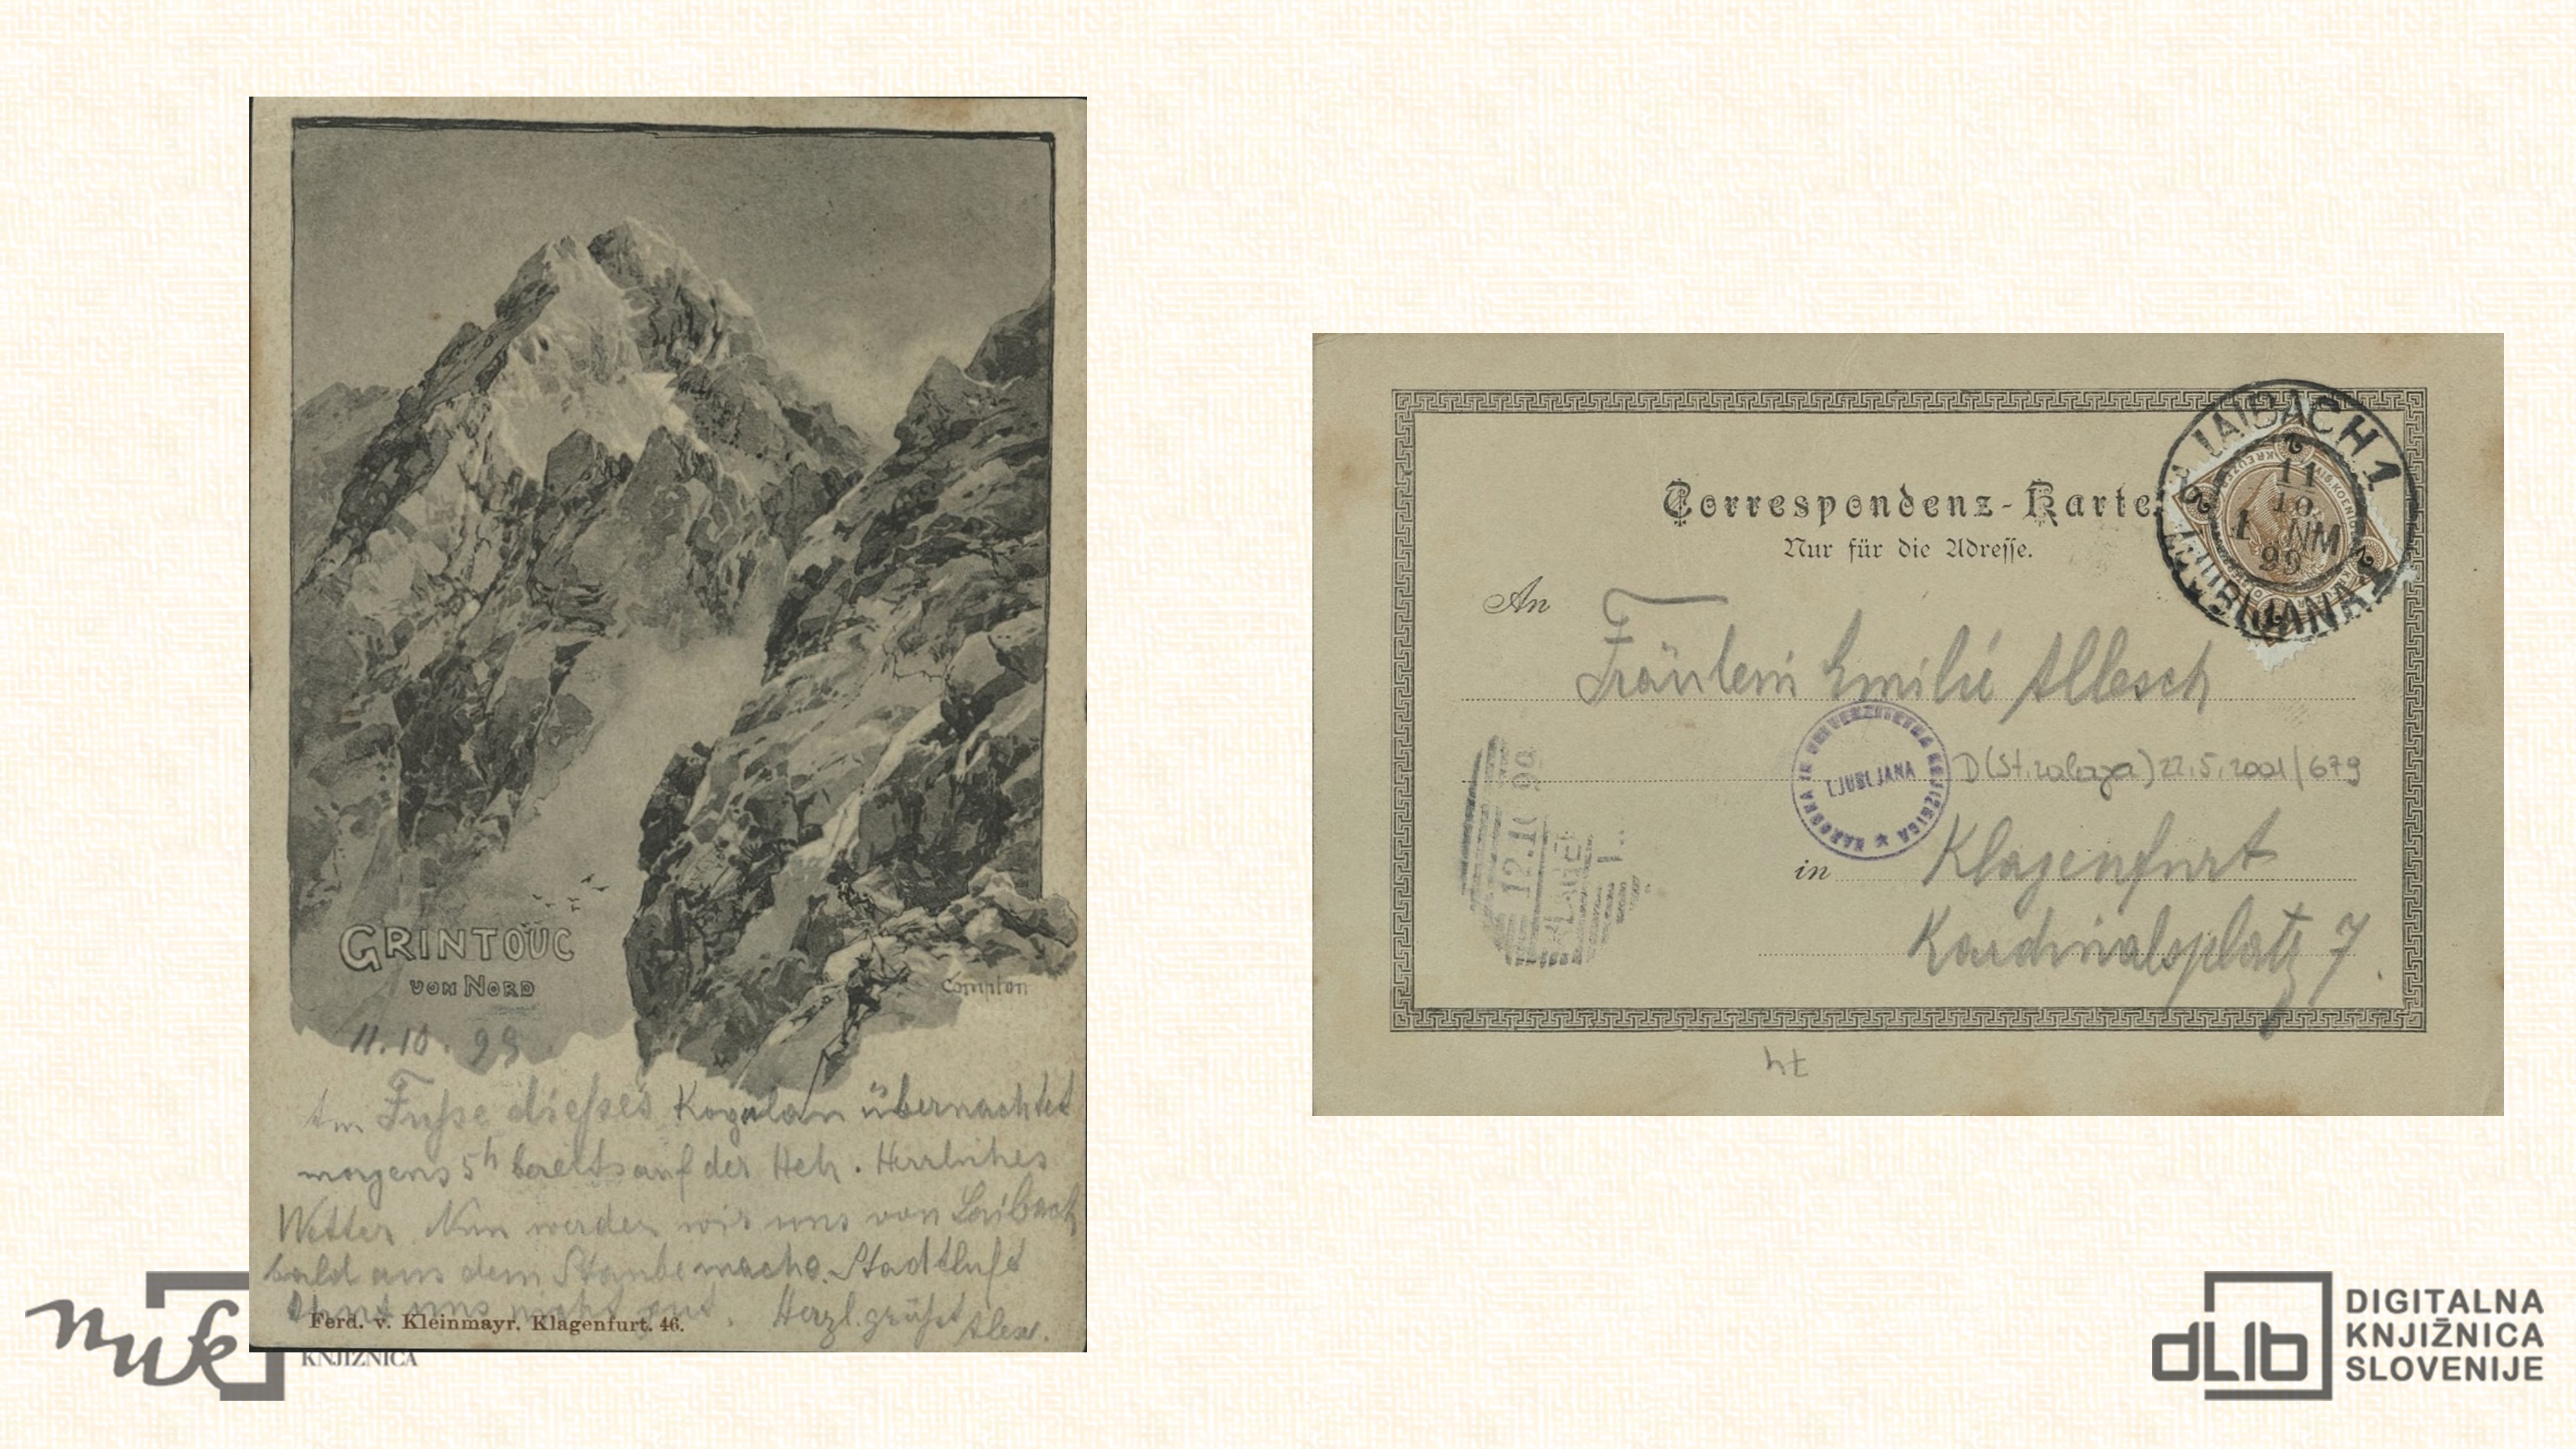 GRINTOUC
VON NORD
Compton
11.10.99
Am Fusse dieses Kogalan übernachtet
morgens 5h bereits auf der Höh. Herrliches
Wetter. Nun werden wir uns von Laibach
bald aus dem Staube mache. Stadtluft
uns nicht gut. Herzl. grüßt Alex.
Ferd. v. Kleinmayr. Klagenfurt. 46.
Correspondenz-Karte
Nur für die Adresse.
LAIBACH 1
11
10
1 NM
99
LJUBLJANA 1
An
Fräulein Emilie Allesch
NARODNA IN UNIVERZITETNA KNJIŽNICA
LJUBLJANA
D(St.zaloga)22.5.2001/679
12.10 99
in Klagenfurt
Kardinalsplatz 7.
nuk
KNJIŽNICA
dLib
DIGITALNA
KNJIŽNICA
SLOVENIJE